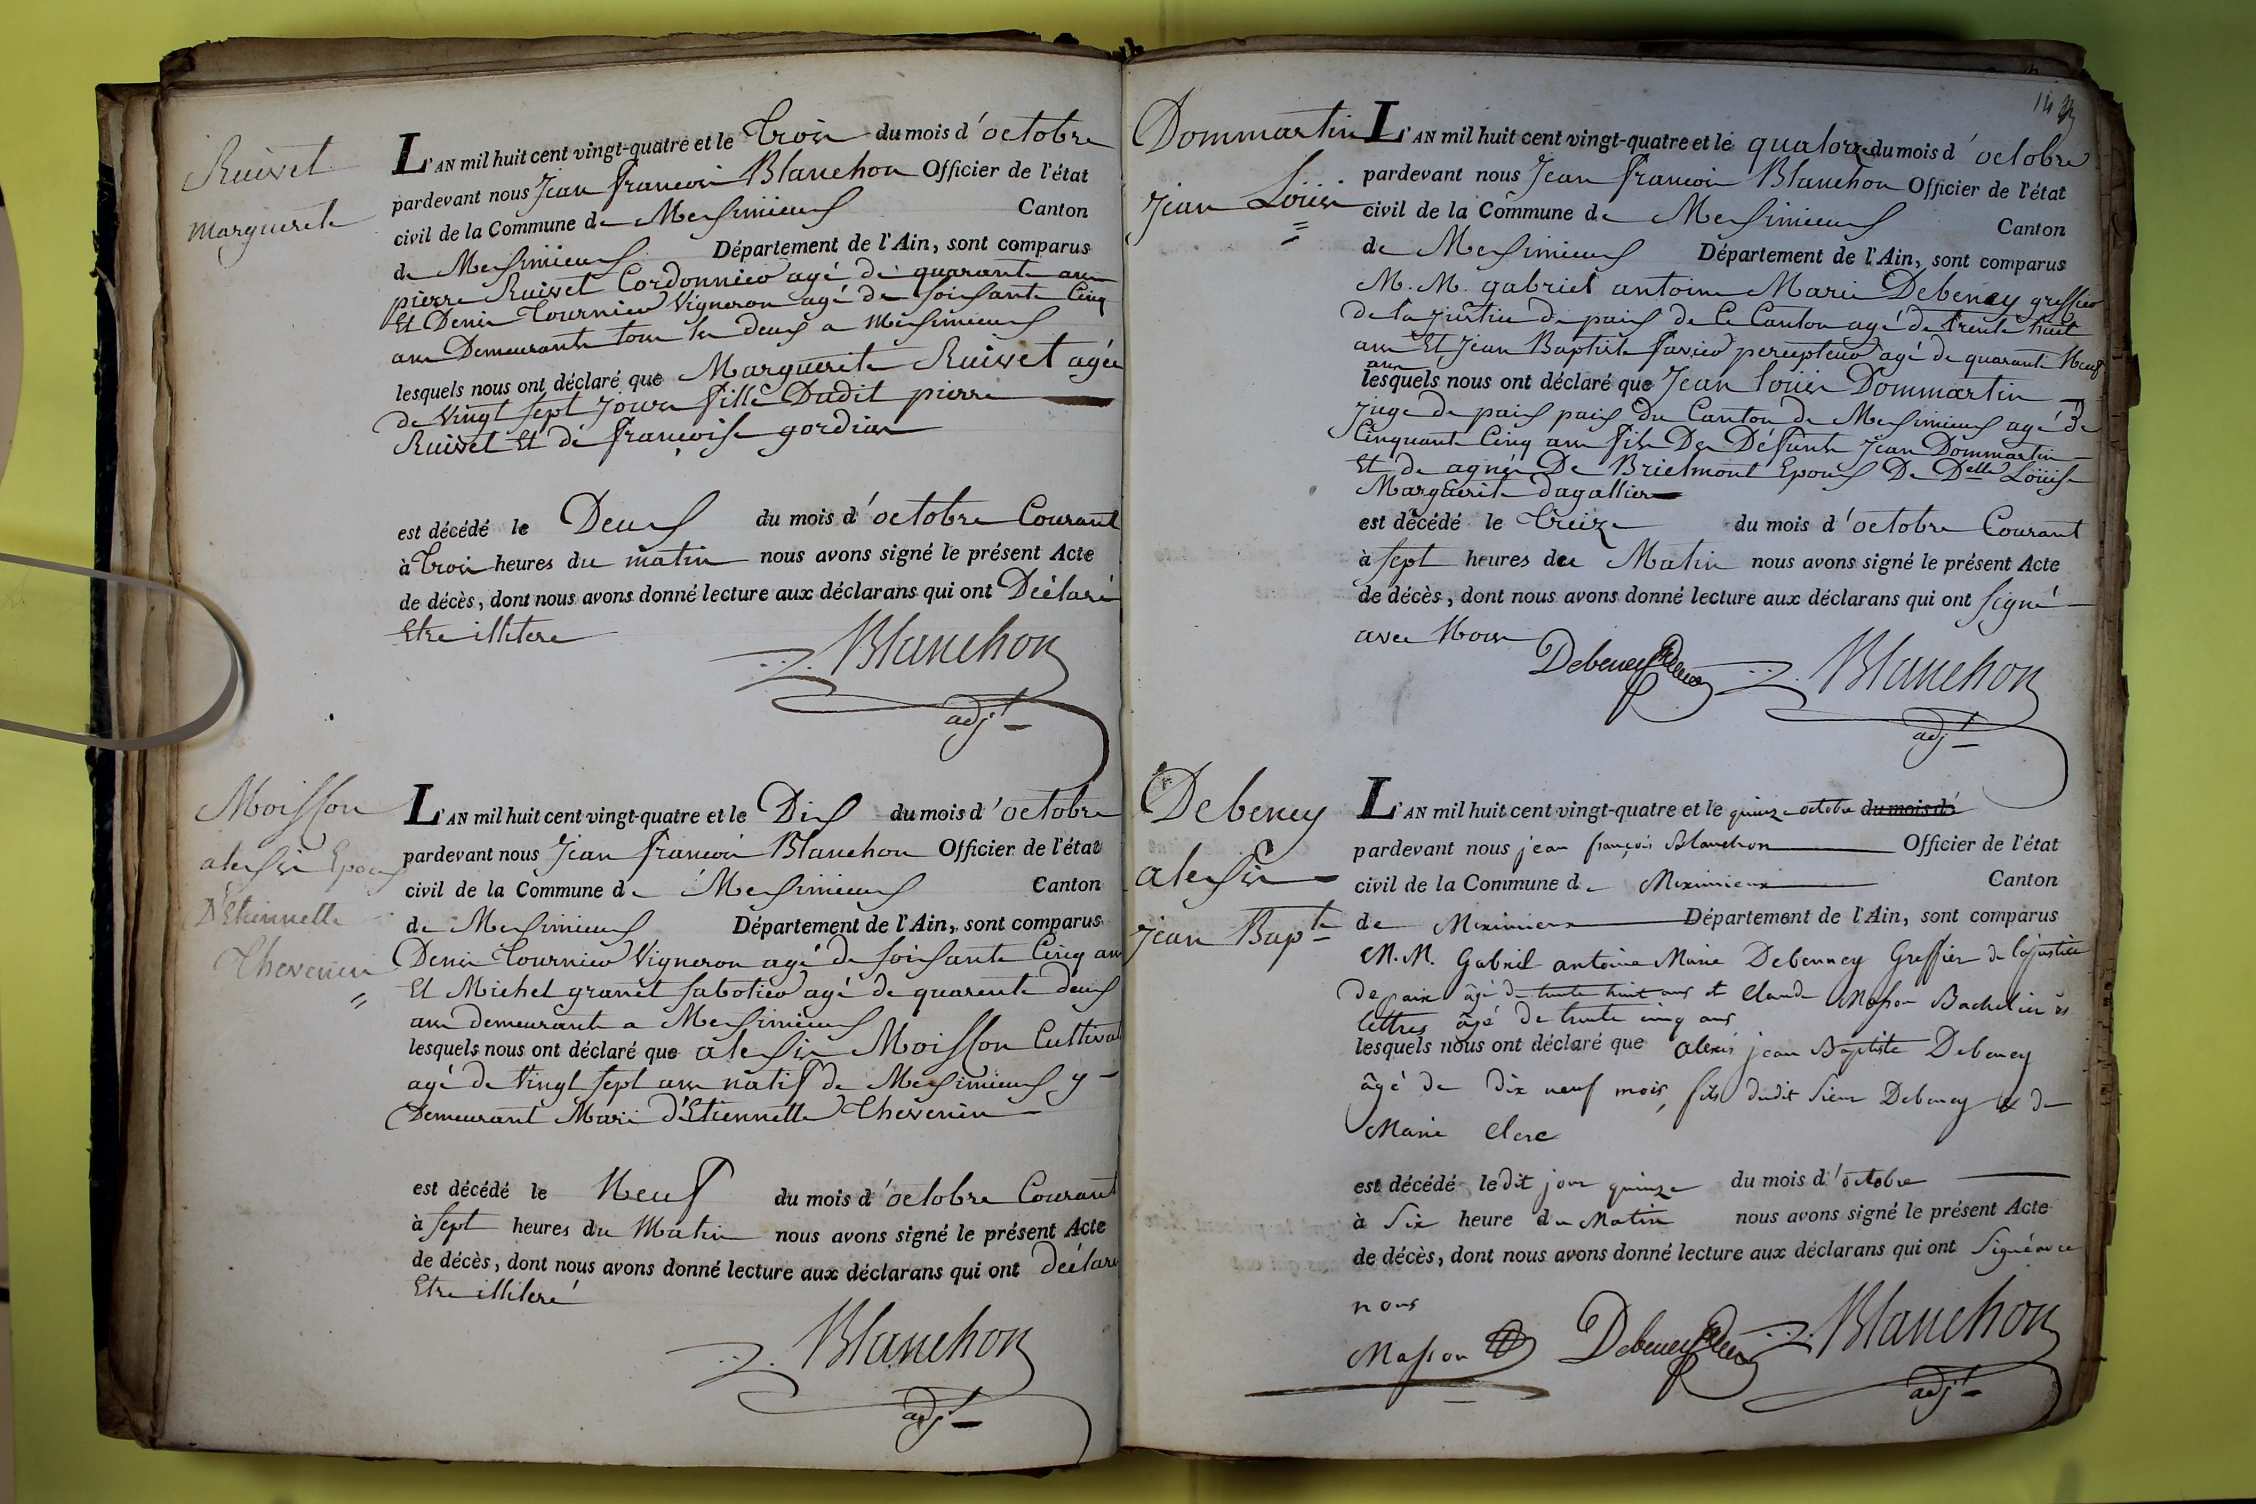 Ruivet
Marguerite
L'AN mil huit cent vingt-quatre et le Trois du mois d'octobre
pardevant nous Jean françois Blanchon Officier de l'état
civil de la Commune de Meximieux Canton
de Meximieux Département de l'Ain, sont comparus
pierre Ruivet Cordonnier agé de quarante ans
Et Denis Tournier Vigneron agé de soixante Cinq
ans Demeurants tous les deux a Meximieux
lesquels nous ont déclaré que Marguerite Ruivet agée
de Vingt sept jours fille Dudit pierre
Ruivet Et de françoise gordian
est décédé le Deux du mois d'octobre Courant
à Trois heures du matin nous avons signé le présent Acte
de décès, dont nous avons donné lecture aux déclarans qui ont Déclaré
Etre illitere
Blanchon
adjt
Moisson
alexis Epoux
D'Etiennette
Thevenin
L'AN mil huit cent vingt-quatre et le Dix du mois d'octobre
pardevant nous Jean françois Blanchon Officier de l'état
civil de la Commune de Meximieux Canton
de Meximieux Département de l'Ain, sont comparus
Denis Tournier Vigneron agé de soixante Cinq ans
Et Michel granet sabotier agé de quarente deux
ans demeurants a Meximieux
lesquels nous ont déclaré que alexis Moisson Cultivat
agé de Vingt sept ans natif de Meximieux y
Demeurant Mari d'Etiennette Thevenin
est décédé le Neuf du mois d'octobre Courant
à sept heures du Matin nous avons signé le présent Acte
de décès, dont nous avons donné lecture aux déclarans qui ont déclaré
Etre illiteré
Blanchon
adjt
Dommartin
Jean Louis
L'AN mil huit cent vingt-quatre et le quatorze du mois d'octobre
pardevant nous Jean françois Blanchon Officier de l'état
civil de la Commune de Meximieux Canton
de Meximieux Département de l'Ain, sont comparus
M. M. gabriel antoine Marie Debeney greffier
de la justice de paix de Ce Canton agé de trente huit
ans Et Jean Baptiste favier percepteur agé de quarante Neuf
ans
lesquels nous ont déclaré que Jean louis Dommartin
juge de paix paix du Canton de Meximieux agé de
Cinquante Cinq ans fils Des Défunts Jean Dommartin
Et de agnés De Brielmont Epoux De Delle Loüise
Marguerite dagallier
est décédé le Treize du mois d'octobre Courant
à sept heures du Matin nous avons signé le présent Acte
de décès, dont nous avons donné lecture aux déclarans qui ont signé
avec Nous
Debeney Blanchon
adjt
Debeney
alexis
Jean Bapte
L'AN mil huit cent vingt-quatre et le quinze octobre du mois d'
pardevant nous jean françois Blanchon Officier de l'état
civil de la Commune de Meximieux Canton
de Meximieux Département de l'Ain, sont comparus
M. M. Gabriel antoine Marie Debenney Greffier de la justice
de paix âgé de trente huit ans et Claude Masson Bachelier ès
lettres âgé de trente cinq ans
lesquels nous ont déclaré que alexis jean Baptiste Debeney
âgé de dix neuf mois, fils dudit Sieur Debeney et de
Marie Clerc
est décédé ledit jour quinze du mois d'octobre
à Six heure du Matin nous avons signé le présent Acte
de décès, dont nous avons donné lecture aux déclarans qui ont Signé avec
nous
Masson Debeney Blanchon
adjt